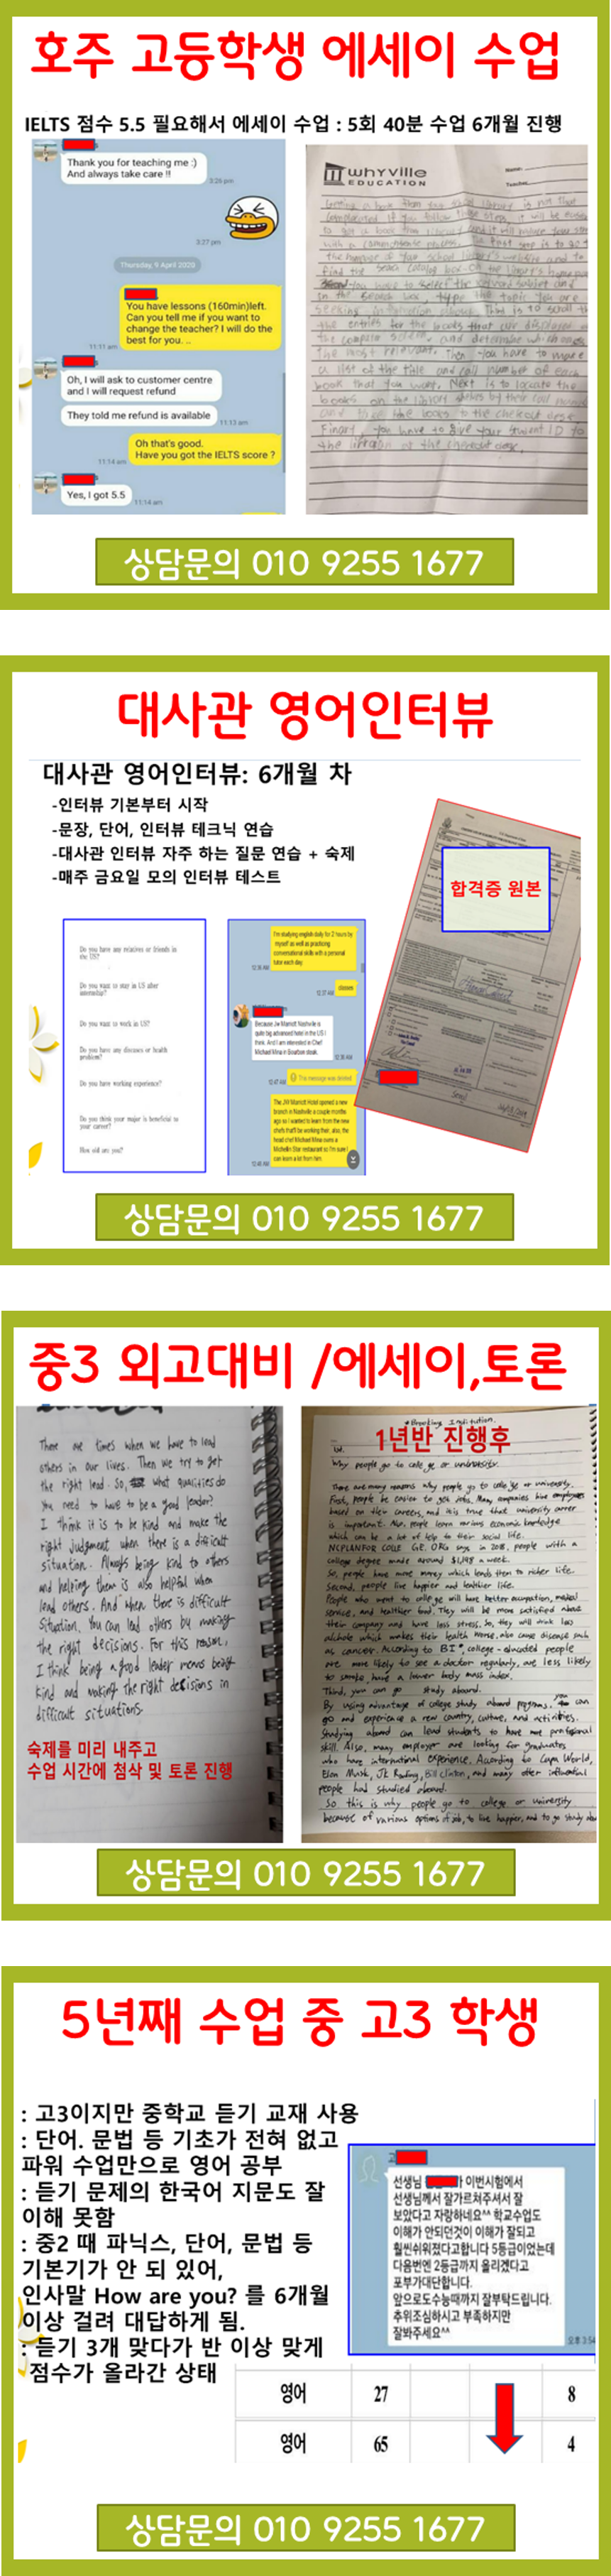 호주 고등학생 에세이 수업
IELTS 점수 5.5 필요해서 에세이 수업 : 5회 40분 수업 6개월 진행
Thank you for teaching me :)
And always take care !!
3:26 pm
3:27 pm
Thursday, 9 April 2020
You have lessons (160min)left.
Can you tell me if you want to
change the teacher? I will do the
best for you. ..
11:11 am
Oh, I will ask to customer centre
and I will request refund
They told me refund is available
11:13 am
Oh that's good.
Have you got the IELTS score ?
11:14 am
Yes, I got 5.5
11:14 am
whyville
EDUCATION
Name:
Teacher
상담문의 010 9255 1677
대사관 영어인터뷰
대사관 영어인터뷰: 6개월 차
-인터뷰 기본부터 시작
-문장, 단어, 인터뷰 테크닉 연습
-대사관 인터뷰 자주 하는 질문 연습 + 숙제
-매주 금요일 모의 인터뷰 테스트
합격증 원본
Do you have any relatives or friends in
the US?
Do you want to stay in US after
internship?
Do you want to work in US?
Do you have any diseases or health
problem?
Do you have working experience?
Do you think your major is beneficial to
your career?
How old are you?
I'm studying english daily for 2 hours by
myself as well as practicing
conversational skills with a personal
tutor each day
12:36 AM
classes
12:37 AM
Because Jw Marriott Nashville is
quite big advanced hotel in the US I
think. And I am interested in Chef
Michael Mina in Bourbon steak.
12:38 AM
This message was deleted
12:47 AM
The JW Marriott Hotel opened a new
branch in Nashville a couple months
ago so I wanted to learn from the new
chefs that'll be working their, also, the
head chef Michael Mina owns a
Michelin Star restaurant so I'm sure I
can learn a lot from him.
12:48 AM
상담문의 010 9255 1677
중3 외고대비 /에세이,토론
There are times when we have to lead
others in our lives. Then we try to get
the right lead. So, what qualities do
you need to have to be a good leader?
I think it is to be kind and make the
right judgment when there is a difficult
situation. Always being kind to others
and helping them is also helpful when
lead others. And when there is difficult
situation, You can lead others by making
the right decisions. For this reason,
I think being a good leader means being
kind and making the right decisions in
difficult situations.
숙제를 미리 내주고
수업 시간에 첨삭 및 토론 진행
Brooking Institution.
1년반 진행후
Why people go to college or university.
There are many reasons why people go to college or university.
First, people be easier to get jobs. Many companies hire employees
based on their careers, and it is true that university career
is important. Also, people learn various economic knowledge
which can be a lot of help to their social life.
NCPLANFOR COLLE GE. ORG says in 2018, people with a
college degree made around $1,198 a week.
So, people have more money which leads them to richer life.
Second, people live happier and healthier life.
People who went to college will have better occupation, medical
service, and healthier food. They will be more satisfied above
their company and have less stress. So, they will drink less
alchole which makes their health worse, also cause disease such
as cancer. According to BI*, college-educated people
are more likely to see a doctor regularly, are less likely
to smoke, have a lower body mass index.
Third, you can go study aboard.
By using advantage of college study aboard programs, you can
go and experience a new country, culture, and activities.
Studying aboard can lead students to have more profesional
skill. Also, many employer are looking for graduates
who have international experience. According to Cape World,
Elon Musk, JK Rowling, Bill Clinton, and many other influential
people had studied aboard.
So this is why people go to college or university
because of various options of job, to live happier, and to go study
상담문의 010 9255 1677
5년째 수업 중 고3 학생
: 고3이지만 중학교 듣기 교재 사용
: 단어. 문법 등 기초가 전혀 없고
파워 수업만으로 영어 공부
: 듣기 문제의 한국어 지문도 잘
이해 못함
: 중2 때 파닉스, 단어, 문법 등
기본기가 안 되 있어,
인사말 How are you? 를 6개월
이상 걸려 대답하게 됨.
: 듣기 3개 맞다가 반 이상 맞게
점수가 올라간 상태
선생님 가 이번시험에서
선생님께서 잘가르쳐주셔서 잘
보았다고 자랑하네요^^ 학교수업도
이해가 안되던것이 이해가 잘되고
훨씬쉬워졌다고합니다 5등급이었는데
다음번엔 2등급까지 올리겠다고
포부가대단합니다.
앞으로도수능때까지 잘부탁드립니다.
추위조심하시고 부족하지만
잘봐주세요^^
오후 3:54
영어 27 8
영어 65 4
상담문의 010 9255 1677